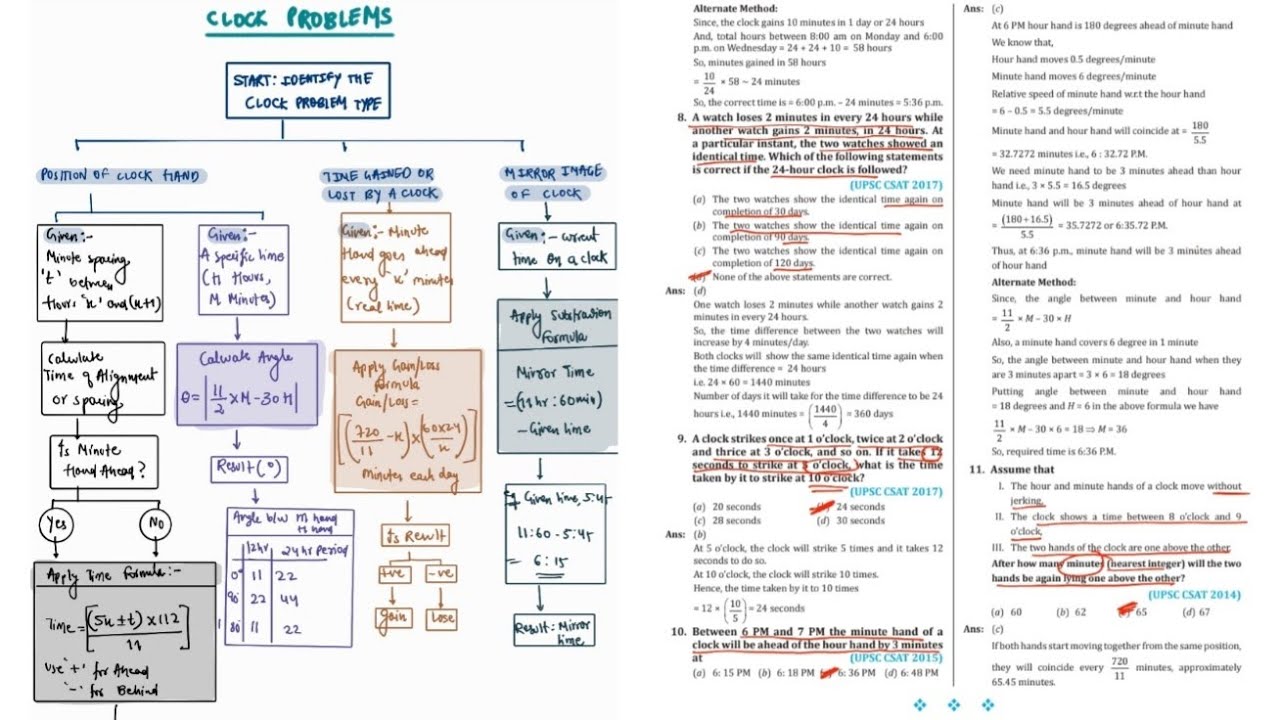 CLOCK PROBLEMS
START: IDENTIFY THE
CLOCK PROBLEM TYPE
POSITION OF CLOCK HAND
Given:-
Minute spacing
't' between
Hours 'x' and (x+1)
Calculate
Time of Alignment
or spacing
Is Minute
Hand Ahead?
Yes
No
Apply Time Formula:-
Time = [(5x ± t) × 112 / 11]
Use '+' for Ahead
'-' for Behind
Given:-
A specific time
(H Hours,
M Minutes)
Calculate Angle
θ = |11/2 × M - 30H|
Result (°)
Angle b/w M hand
H hand
12hr 24hr Period
0° 11 22
90° 22 44
180 11 22
TIME GAINED OR
LOST BY A CLOCK
Given:- Minute
Hand goes ahead
every 'x' minutes
(real time)
Apply Gain/Loss
formula
Gain/Loss =
[(720/11 - x) × (60×24/x)]
Minutes each day
Is Result
+ve
-ve
Gain
Lose
MIRROR IMAGE
OF CLOCK
Given:-
time on a clock
Apply Substraction
Formula
Mirror Time
= (11hr : 60min)
- Given time
Given time, 5:45
11:60 - 5:45
= 6:15
Result: Mirror
time
Alternate Method:
Since, the clock gains 10 minutes in 1 day or 24 hours
And, total hours between 8:00 am on Monday and 6:00
p.m. on Wednesday = 24 + 24 + 10 = 58 hours
So, minutes gained in 58 hours
= 10/24 × 58 ~ 24 minutes
So, the correct time is = 6:00 p.m. – 24 minutes = 5:36 p.m.
8. A watch loses 2 minutes in every 24 hours while
another watch gains 2 minutes, in 24 hours. At
a particular instant, the two watches showed an
identical time. Which of the following statements
is correct if the 24-hour clock is followed?
(UPSC CSAT 2017)
(a) The two watches show the identical time again on
completion of 30 days.
(b) The two watches show the identical time again on
completion of 90 days.
(c) The two watches show the identical time again on
completion of 120 days.
None of the above statements are correct.
Ans: (d)
One watch loses 2 minutes while another watch gains 2
minutes in every 24 hours.
So, the time difference between the two watches will
increase by 4 minutes/day.
Both clocks will show the same identical time again when
the time difference = 24 hours
i.e. 24 × 60 = 1440 minutes
Number of days it will take for the time difference to be 24
hours i.e., 1440 minutes = (1440/4) = 360 days
9. A clock strikes once at 1 o'clock, twice at 2 o'clock
and thrice at 3 o'clock, and so on. If it takes 12
seconds to strike at 5 o'clock, what is the time
taken by it to strike at 10 o'clock?
(UPSC CSAT 2017)
(a) 20 seconds 24 seconds
(c) 28 seconds (d) 30 seconds
Ans: (b)
At 5 o'clock, the clock will strike 5 times and it takes 12
seconds to do so.
At 10 o'clock, the clock will strike 10 times.
Hence, the time taken by it to 10 times
= 12 × (10/5) = 24 seconds
10. Between 6 PM and 7 PM the minute hand of a
clock will be ahead of the hour hand by 3 minutes
at (UPSC CSAT 2015)
(a) 6: 15 PM (b) 6: 18 PM 6: 36 PM (d) 6: 48 PM
Ans: (c)
At 6 PM hour hand is 180 degrees ahead of minute hand
We know that,
Hour hand moves 0.5 degrees/minute
Minute hand moves 6 degrees/minute
Relative speed of minute hand w.r.t the hour hand
= 6 – 0.5 = 5.5 degrees/minute
Minute hand and hour hand will coincide at = 180/5.5
= 32.7272 minutes i.e., 6 : 32.72 P.M.
We need minute hand to be 3 minutes ahead than hour
hand i.e., 3 × 5.5 = 16.5 degrees
Minute hand will be 3 minutes ahead of hour hand at
= (180+16.5)/5.5 = 35.7272 or 6:35.72 P.M.
Thus, at 6:36 p.m., minute hand will be 3 minutes ahead
of hour hand
Alternate Method:
Since, the angle between minute and hour hand
= 11/2 × M – 30 × H
Also, a minute hand covers 6 degree in 1 minute
So, the angle between minute and hour hand when they
are 3 minutes apart = 3 × 6 = 18 degrees
Putting angle between minute and hour hand
= 18 degrees and H = 6 in the above formula we have
11/2 × M – 30 × 6 = 18 ⇒ M = 36
So, required time is 6:36 P.M.
11. Assume that
I. The hour and minute hands of a clock move without
jerking.
II. The clock shows a time between 8 o'clock and 9
o'clock.
III. The two hands of the clock are one above the other.
After how many minutes (nearest integer) will the two
hands be again lying one above the other?
(UPSC CSAT 2014)
(a) 60 (b) 62 65 (d) 67
Ans: (c)
If both hands start moving together from the same position,
they will coincide every 720/11 minutes, approximately
65.45 minutes.